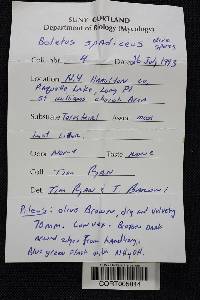 SUNY CORTLAND
Department of Biology (Mycology)
Boletus spadiceus olive spores
Coll. Nbr. 4 Date 26 July 1993
Location N.Y. Hamilton co.
Raquette Lake, Long Pt
St Williams church Area
Substrate Terrestrial moss
Leaf litter.
Odor None Taste None
Coll Tim Ryan
Det Tim Ryan & T Baroni
Pileus: olive Brown, dry and velvety
70mm. Convex. Broken
around edges from handling.
Blue green flash with NH4OH.
CORT009044